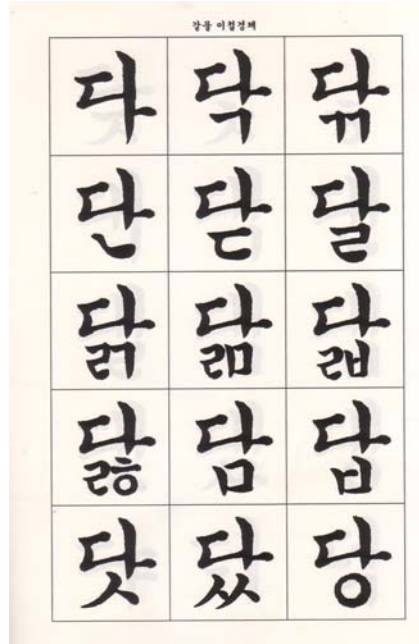 갈물 이철경체
다 닥 닦
단 닫 달
닭 닮 닯
닳 담 답
닷 닸 당